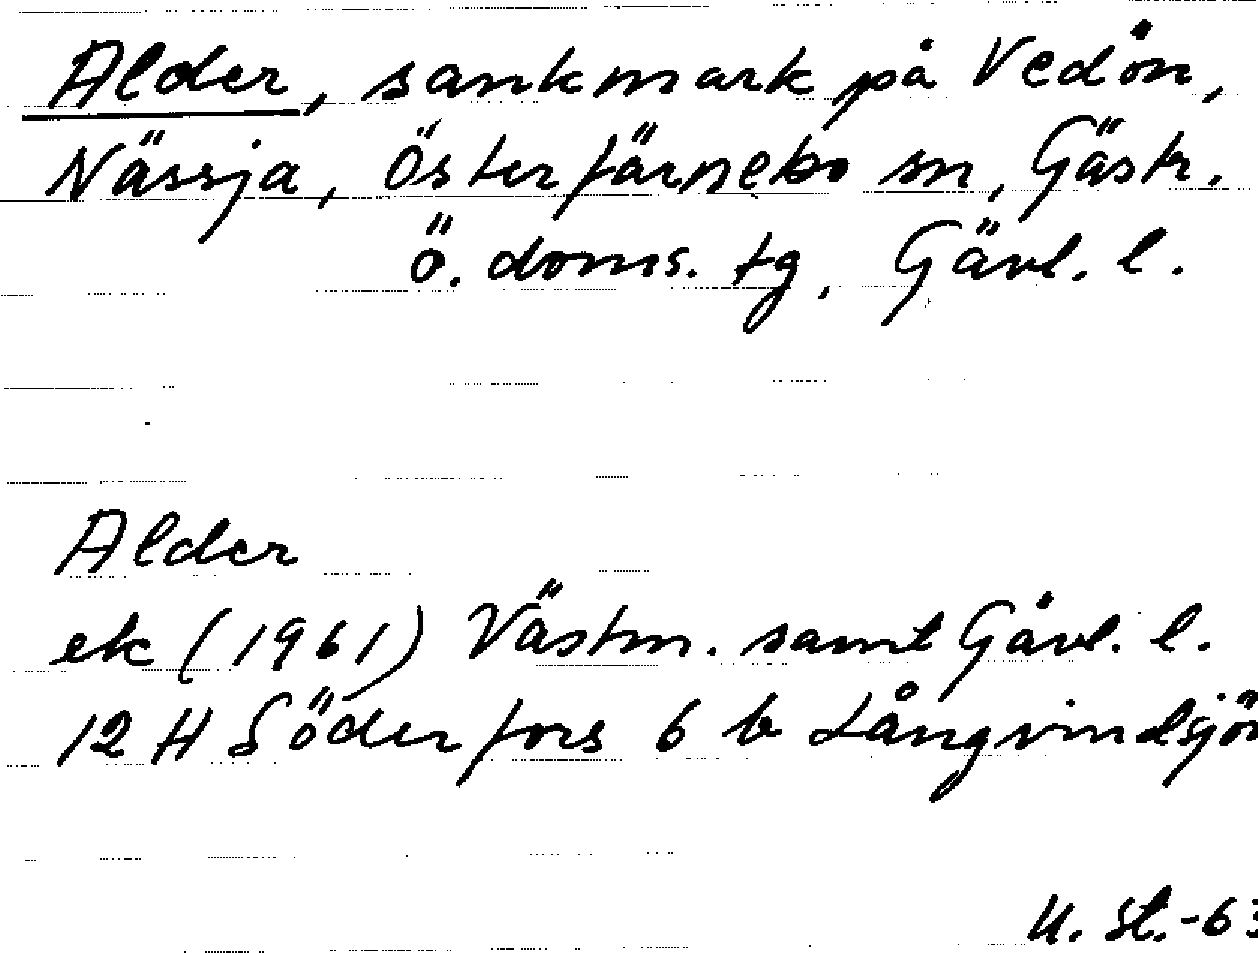 Alder, sankmark på Vedön,
Nässja, Österfärnebo sn, Gästr.
ö. doms. tg, Gävl. l.
Alder
ek (1961) Västm. samt Gävl. l.
12 H Söderfors 6 b Långvindsjön
U. St.-63